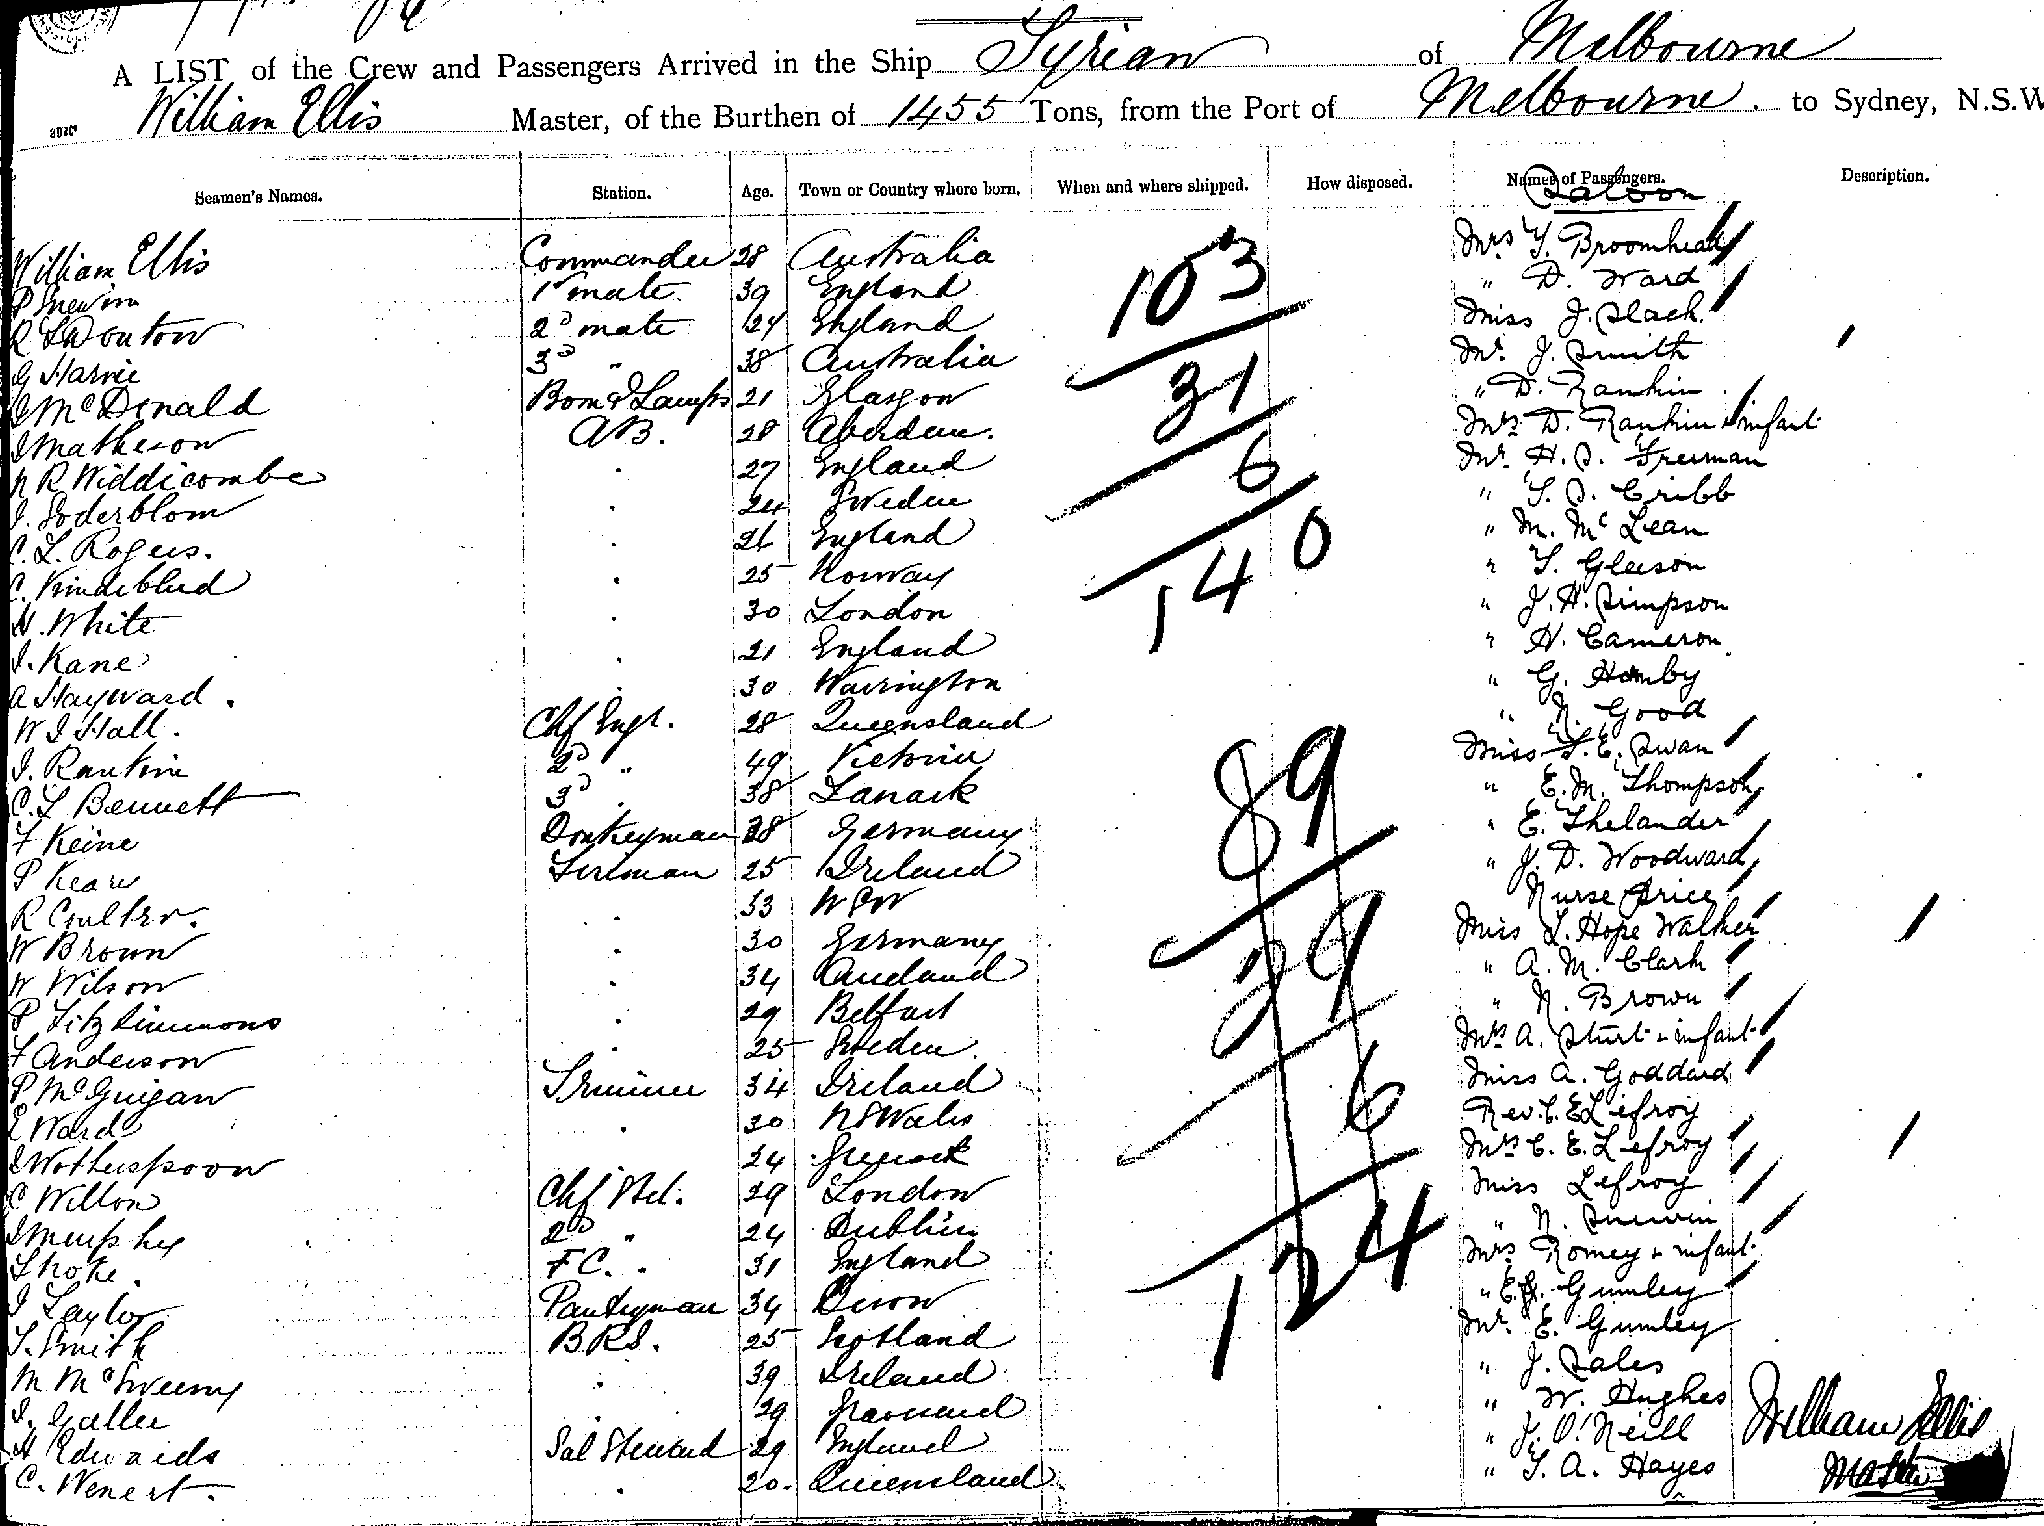 A LIST of the Crew and Passengers Arrived in the Ship Syrian of Melbourne
William Ellis Master, of the Burthen of 1455 Tons, from the Port of Melbourne. to Sydney, N.S.W
Seamen's Names. Station. Age. Town or Country where born. When and where shipped. How disposed. Names of Passengers. Description.
Saloon
William Ellis Commander 28 Australia Mrs T. Broomhead
1st mate 39 England " D. Ward
2d mate 24 England Miss J. Slack
G Harvie 3d " 38 Australia Mr. J. Smith
McDonald Bosn & Lamps 21 Glasgow " D. Rankin
J Matheson AB. 28 Aberdeen. Mrs D. Rankin & infant
R Widdicombe . 27 England Mr. H. S. Freeman
J. Soderblom . 24 Sweden " T. S. Cribb
C. L. Rogers. . 26 England " M. McLean
C. . 25 Norway " T. Gleeson
H. White . 30 London " J. H. Simpson
J. Kane . 21 England " H. Cameron
A Hayward . . 30 Warrington " G. Hornby
W J Hall. Chf Engr. 28 Queensland " N. Good
J. Rankine 2d " 49 Victoria Miss E. Swan
C. L Bennett 3d . 38 Lanark " E. M. Thompson
F Keine Donkeyman 28 Germany " E. Thelander
P Keary Fireman 25 Ireland " J. D. Woodward
R Coulter. . 33 NSW Nurse Price
W Brown . 30 Germany Miss L. Hope Walker
W Wilson . 34 " A. M. Clark
P Fitzsimmons . 29 Belfast " N. Brown
F Anderson . 25 Sweden. Mrs A. Sturt & infant
P McGuigan Trimmer 34 Ireland Miss A. Goddard
E Ward . 30 N S Wales Rev. C. E Lefroy
J Wotherspoon 24 Greenock Mrs C. E. Lefroy
C Wilton Chf Std. 29 London Miss Lefroy
J Murphy 2d " 24 Dublin " N.
F C. " 31 England Mrs Romey & infant
J Taylor Pantryman 34 Devon " E. Gumley
T. Smith B.R.S. 25 Scotland Mr. E. Gumley
M McSweeny . 39 Ireland " J. Sales
J. Galler . 29 Gravesend " W. Hughes
H Edwards Sal Steward 29 England " J. O'Neill
C. Wenert. . 20. Queensland " T. A. Hayes
103
31
6
140
89
29
6
124
William Ellis
Master